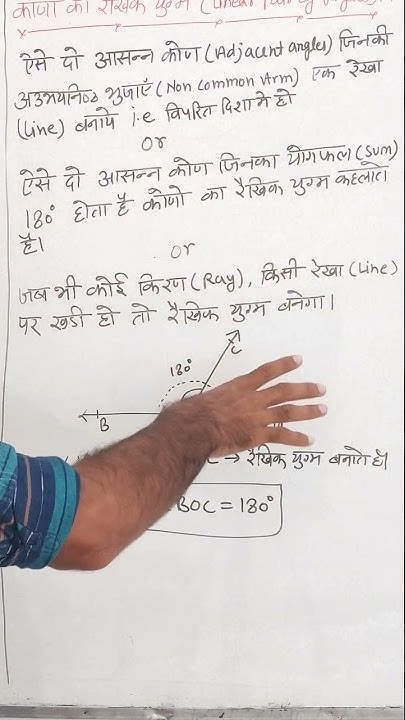 कोणों का रैखिक युग्म (Linear Pair of Angles)
ऐसे दो आसन्न कोण (Adjacent angles) जिनकी
अउभयनिष्ठ भुजाएँ (Non Common Arm) एक रेखा
(Line) बनाये i.e विपरित दिशा मे हो
Or
ऐसे दो आसन्न कोण जिनका योगफल (Sum)
180° होता है कोणो का रैखिक युग्म कहलाते
है।
or
जब भी कोई किरण (Ray), किसी रेखा (Line)
पर खडी हो तो रैखिक युग्म बनेगा।
180°
C
B
C → रैखिक युग्म बनाते है।
BOC = 180°